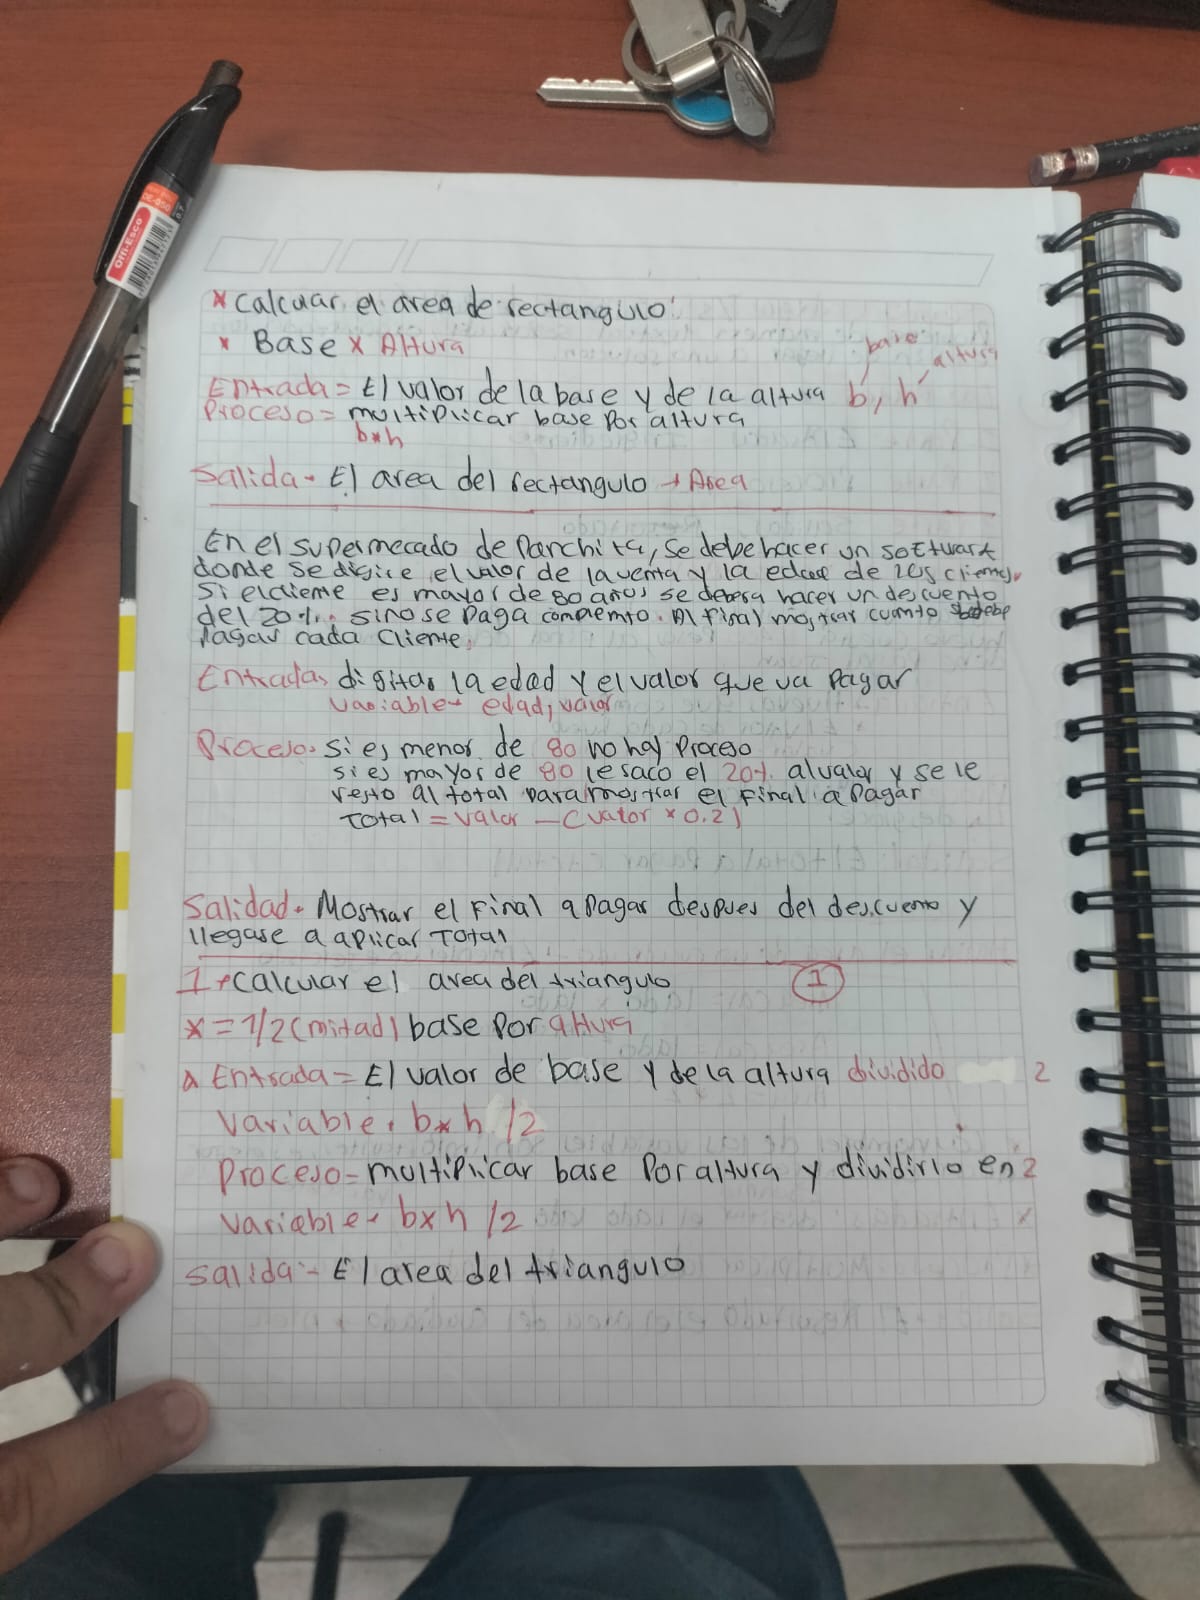 Offi-Esco
OE-050
0.7
* Calcuar el area de rectangulo:
* Base x Altura
base
altura
Entrada = El valor de la base y de la altura b, h
Proceso = multiplicar base por altura
b*h
Salida - El area del rectangulo → Area
En el supermecado de Panchita, se debe hacer un software
donde se digite el valor de la venta y la edad de los clientes.
Si el cliente es mayor de 80 años se debera hacer un descuento
del 20%. sino se paga completo. Al final mostrar cuanto debe
Pagar cada Cliente.
Entrada digitar la edad y el valor que va pagar
Variable → edad, valor
Proceso. si es menor de 80 no hay Proceso
si es mayor de 80 le saco el 20% al valor y se le
resto al total para mostrar el final a pagar
Total = Valor - (Valor * 0.2)
Salidad. Mostrar el Final a pagar despues del descuento y
llegase a aplicar Total
1 → Calcular el area del triangulo 1
* = 1/2 (mitad) base por altura
Entrada = El valor de base y de la altura dividido 2
Variable. b*h /2
Proceso = multiplicar base Por altura y dividirlo en 2
Variable → bxh /2
Salida - El area del triangulo